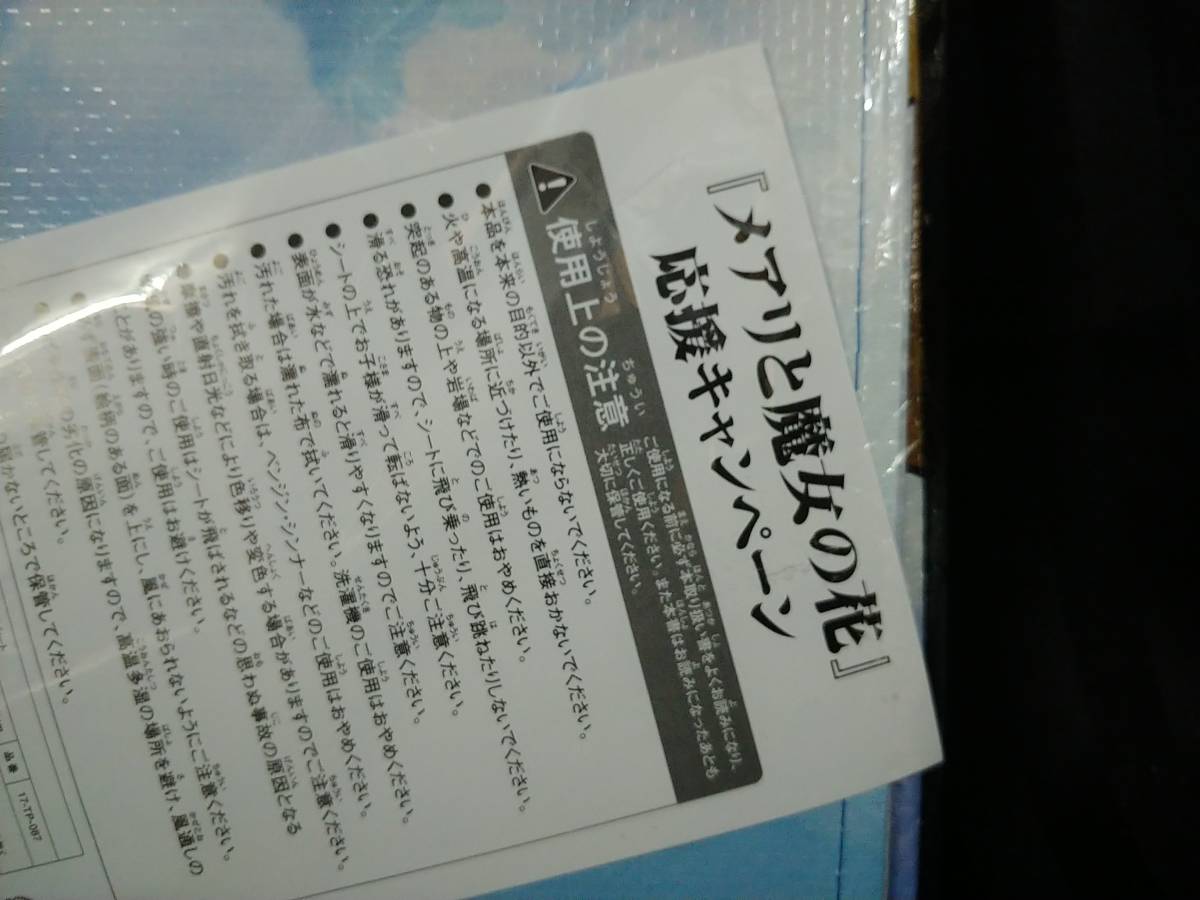 『メアリと魔女の花』
応援キャンペーン
使用上の注意
ご使用になる前に必ず本取り扱い書をよくお読みになり、
正しくご使用ください。また本書はお読みになったあとも
大切に保管してください。
●本品を本来の目的以外でご使用にならないでください。
●火や高温になる場所に近づけたり、熱いものを直接おかないでください。
●突起のある物の上や岩場などでのご使用はおやめください。
●滑る恐れがありますので、シートに飛び乗ったり、飛び跳ねたりしないでください。
●シートの上でお子様が滑って転ばないよう、十分ご注意ください。
●表面が水などで濡れると滑りやすくなりますのでご注意ください。
●汚れた場合は濡れた布で拭いてください。洗濯機のご使用はおやめください。
●汚れを拭き取る場合は、ベンジン・シンナーなどのご使用はおやめください。
や直射日光などにより色移りや変色する場合がありますのでご注意ください。
の強い時のご使用はシートが飛ばされるなどの思わぬ事故の原因となる
ことがありますので、ご使用はお避けください。
面(絵柄のある面)を上にし、風にあおられないようにご注意ください。
の劣化の原因になりますので、高温多湿の場所を避け、風通しの
管してください。
届かないところで保管してください。
品番 17-TP-087